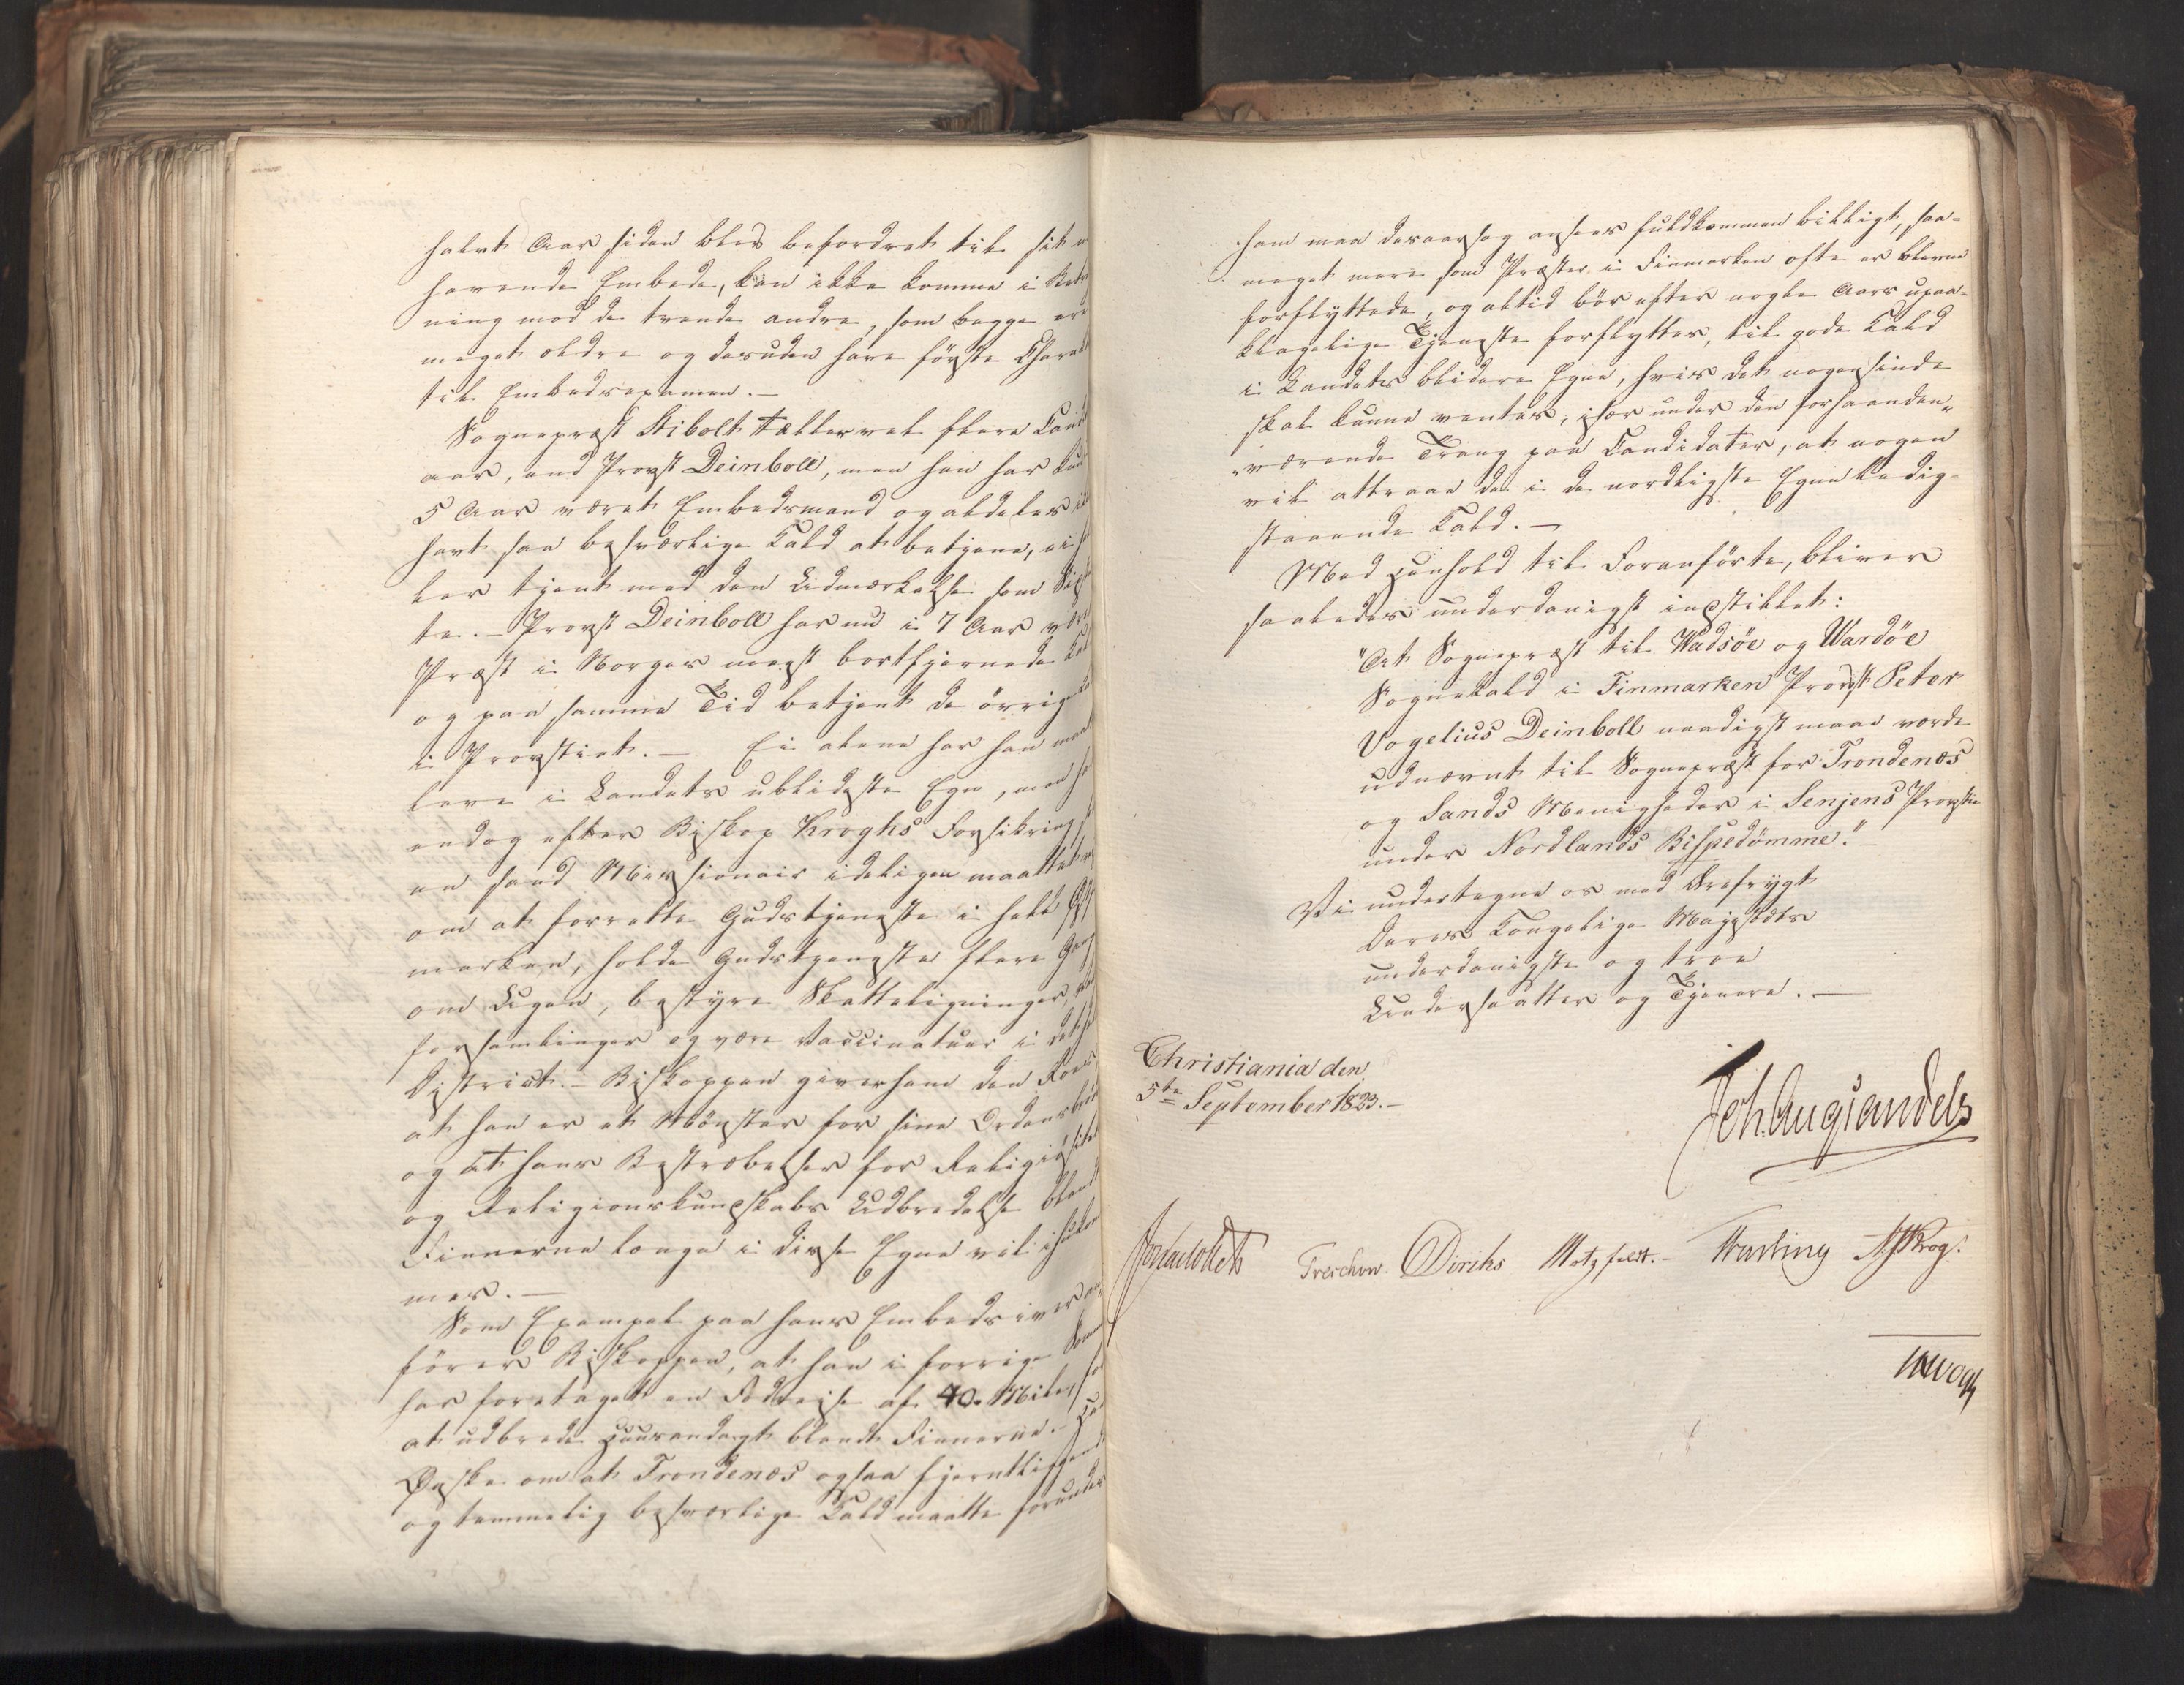 halvt Aar siden blev befordret til sit
havende Embede, kan ikke komme i Betr
ning mod de tvende andre, som begge ere
meget ældre og desuden have første Charak
til Embedsexamen. —
Sognepræst Stibolt tæller vel flere Candi
aar, end Provst Deinboll, men han har kun
5 Aar været Embedsmand og aldeles ik
havt saa besværlige Kald at betjene, ei h
ler tjent med den Udmærkelse som Sids
te. — Provst Deinboll har nu i 7 Aar være
Præst i Norges meest bortfjernede Kal
og paa samme Tid betjent de övrige
i Provstiet. — Ei alene har han maat
leve i Landets ublideste Egn, men ha
endog efter Biskop Kroghs Forsikring so
en sand Missionair ideligen maattet
om at forrette Gudstjeneste i hele Øst
marken, holde Gudstjeneste flere Gang
om Ugen, bestyre Skatteligninger, Val
forsamlinger og være Vaccinateur i det he
District. — Biskoppen giver ham den Roes,
at han er et Mönster for sine Ordensbrö
og at hans Bestræbelser for Religiøsitet
og Religionskundskabs Udbredelse bland
Finnerne længe i disse Egne vil ihukom
mes. —
Som Exempel paa hans Embedsiver an
förer Biskoppen, at han i forrige Somm
har foretaget en Fodreise af 40 Mile, for
at udbrede Huusandagt blandt Finnerne. —
Ønske om at Trondenæs ogsaa fjerntliggende
og temmelig besværlige Kald maatte forundes
ham maa desaarsag ansees fuldkommen billigt, saa-
meget mere som Præster i Finmarken ofte er blevne
forflyttede, og altid bör efter nogle Aars upaa-
klagelige Tjeneste forflyttes, til gode Kald
i Landets blidere Egne, hvis det nogensinde
skal kunne ventes, især under den forhaanden-
værende Trang paa Candidater, at nogen
vil attraae de i de nordligste Egne ledig-
staaende Kald. —
Med Henhold til Foranförte, bliver
saaledes underdanigst indstillet:
"At Sognepræst til Wadsöe og Wardöe
Sognekald i Finmarken Provst Peter
Vogelius Deinboll naadigst maae vorde
udnævnt til Sognepræst for Trondenæs
og Sands Menigheder i Senjens Provstie
under Nordlands Bispedömme." —
Vi undertegne os med Ærefrygt
Deres Kongelige Majestæts
underdanigste og troe
Undersaatter og Tjenere. —
Christiania den
5te September 1823. —
Joh. Aug Sandels
Jonas Collett Treschow Diriks Motzfeldt. Fasting N J Krog.